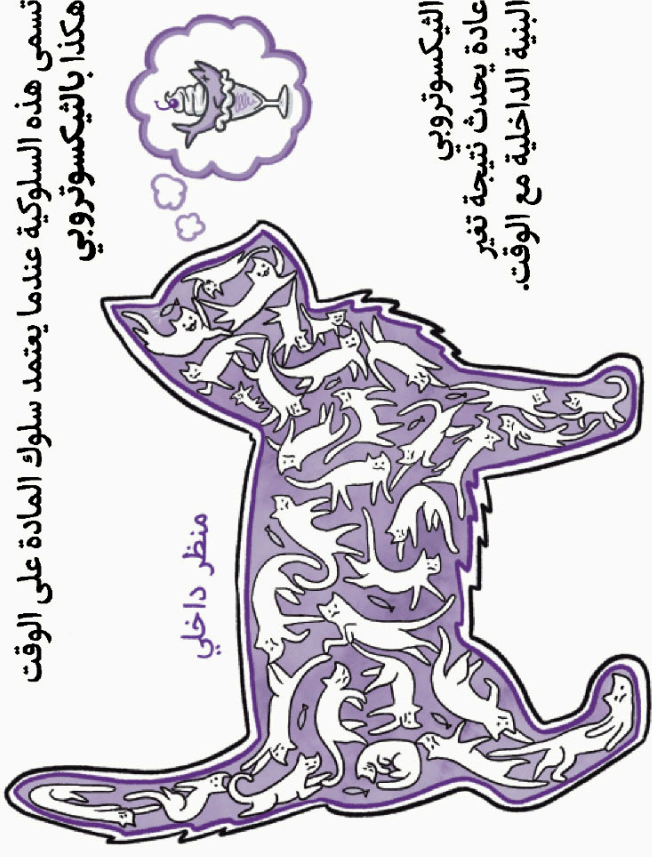 تسمى هذه السلوكية عندما يعتمد سلوك المادة على الوقت
هكذا بالثيكسوتروبي
الثيكسوتروبي
عادة يحدث نتيجة تغير
البنية الداخلية مع الوقت.
منظر داخلي